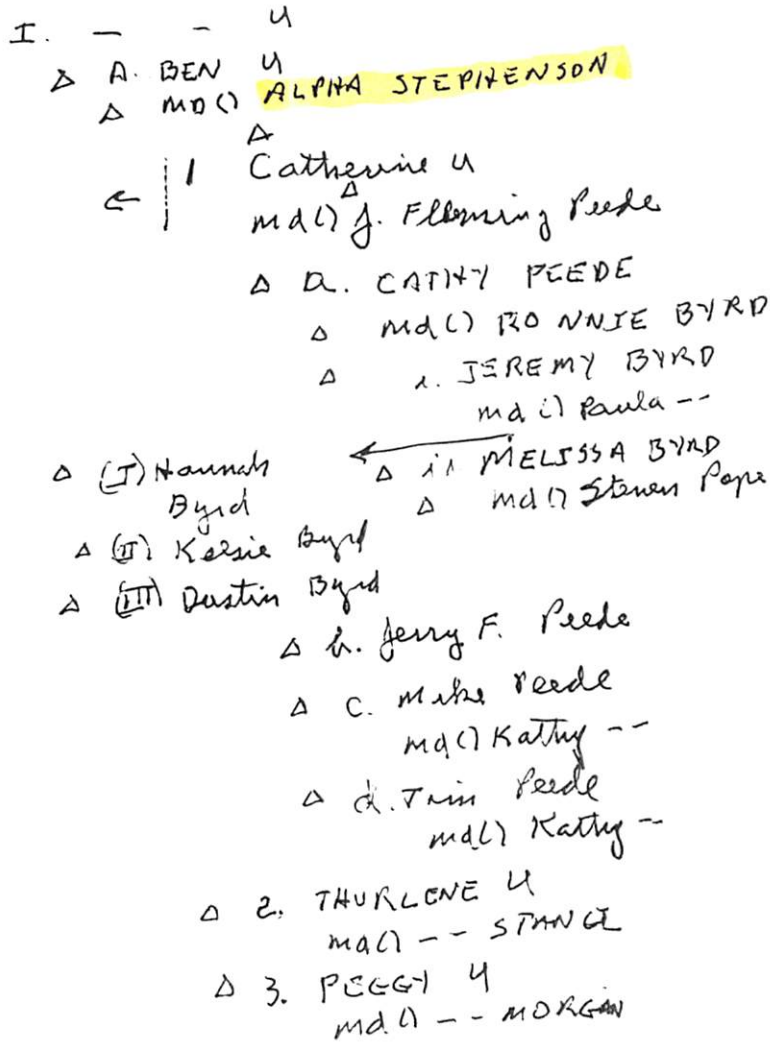 I. — - U
Δ A. BEN U
Δ MD() ALPHA STEPHENSON
Δ
← 1 Catherine U
Δ
md() J. Flleming Peede
Δ a. CATHY PEEDE
Δ md() RONNIE BYRD
Δ i. JEREMY BYRD
md() Paula --
Δ (I) Hannah Byrd
Δ ii MELISSA BYRD
Δ md() Steven Pope
Δ (II) Kelsie Byrd
Δ (III) Dustin Byrd
Δ b. Jerry F. Peede
Δ c. Mike Peede
md() Kathy --
Δ d. Tim Peede
md() Kathy --
Δ 2. THURLENE U
md() -- STANCE
Δ 3. PEGGY U
md() -- MORGAN